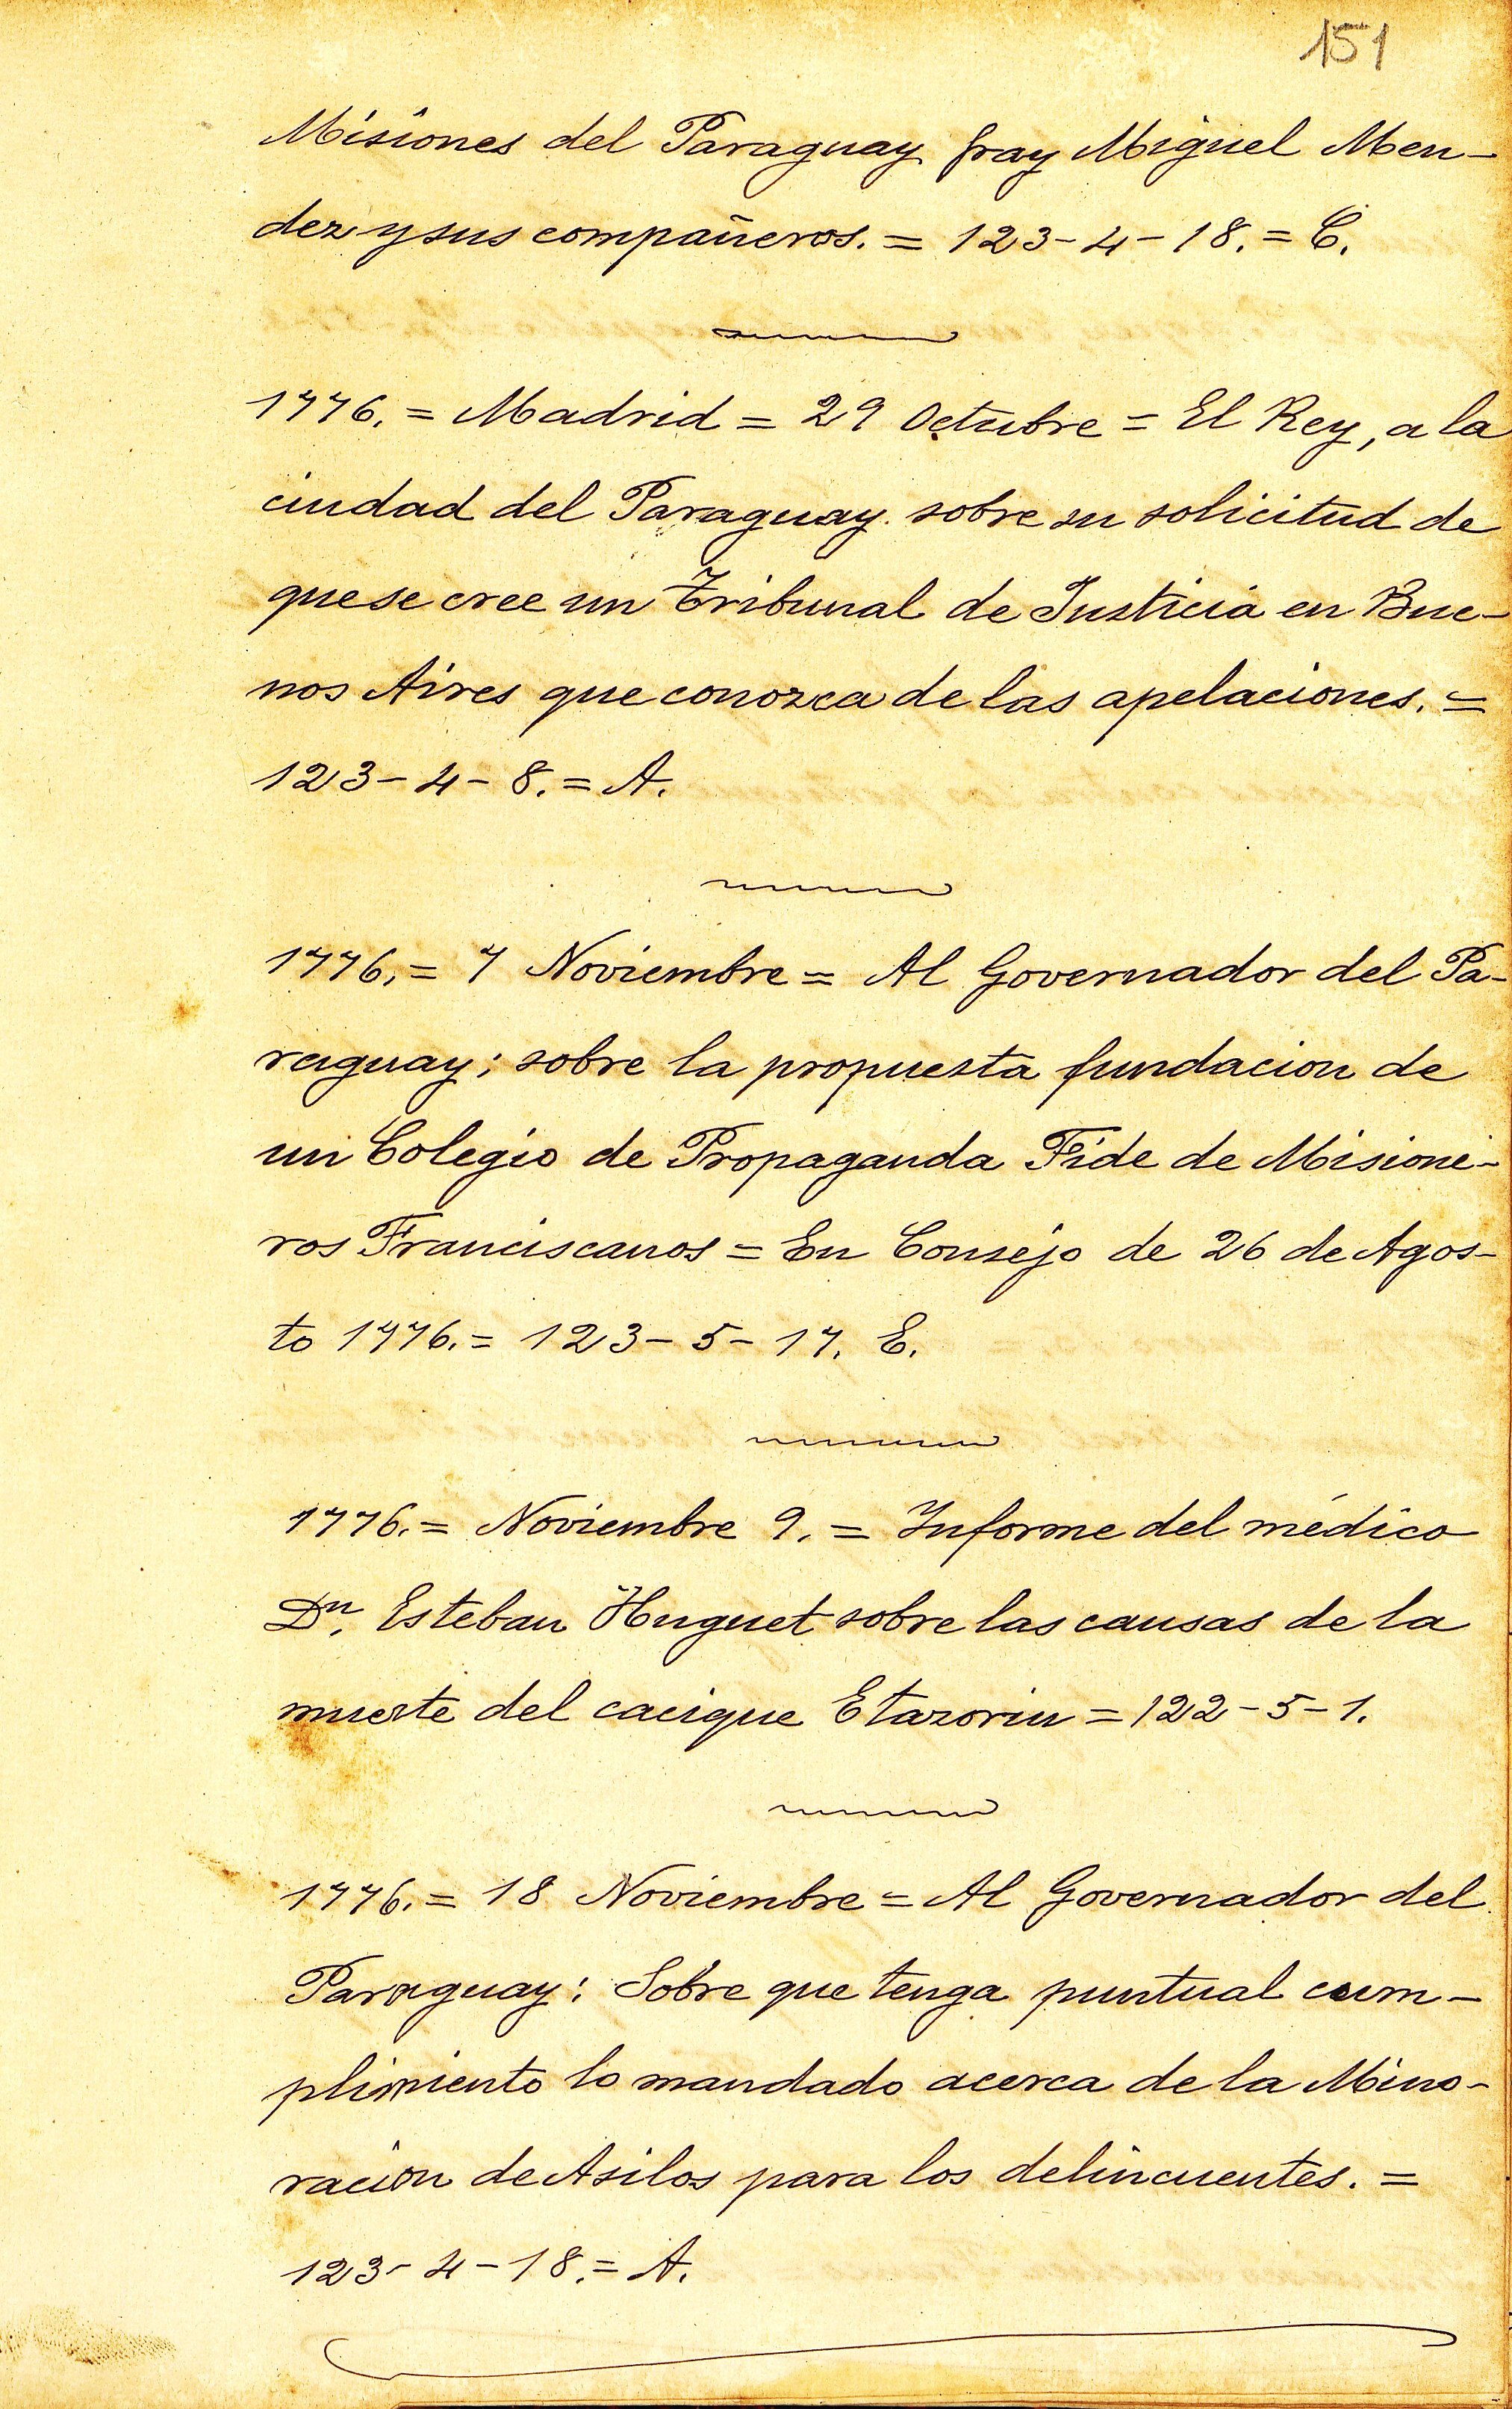 151
Misiones del Paraguay fray Miguel Men-
dez y sus compañeros. = 123-4-18. = C.
1776. = Madrid = 29 Octubre = El Rey, a la
ciudad del Paraguay. sobre su solicitud de
que se cree un Tribunal de Justicia en Bue-
nos Aires que conozca de las apelaciones. =
123-4-8. = A.
1776. = 7 Noviembre = Al Governador del Pa-
raguay; sobre la propuesta fundacion de
un Colegio de Propaganda Fide de Misione-
ros Franciscanos = En Consejo de 26 de Agos-
to 1776. = 123-5-17. E.
1776. = Noviembre 9. = Informe del médico
Dn. Esteban Huguet sobre las causas de la
muerte del cacique Etazorin = 122-5-1.
1776. = 18 Noviembre = Al Governador del
Paraguay: Sobre que tenga puntual cum-
plimiento lo mandado acerca de la Mino-
racion de Asilos para los delincuentes. =
123-4-18. = A.